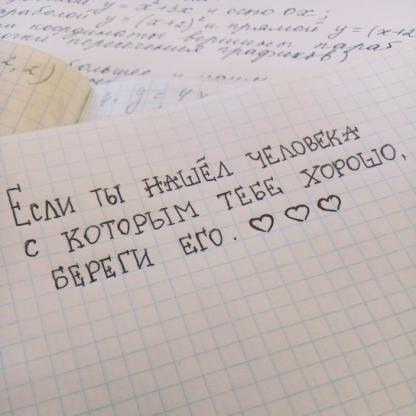 параболой y = x² + 3x и осью Ox;
параболой y = (x+2)² и прямой y = (x+2
координаты вершины параб
пересечения графиков;
2, 2)
Если ты нашёл человека
с которым тебе хорошо,
береги его. ♡ ♡ ♡